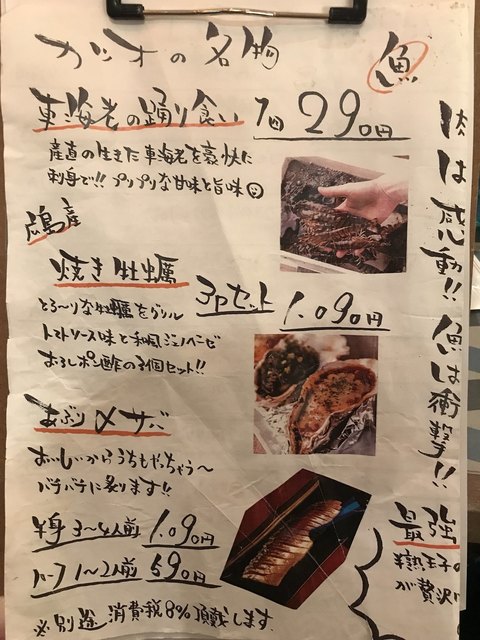 カツオの名物
魚
車海老の踊り食い 1コ 290円
産直の生きた車海老を豪快に
刺身で!! プリプリな甘味と旨味
産
焼き牡蠣 3Pセット 1.090円
とろ〜りな牡蠣をグリル
トマトソース味と和風ジェノベーゼ
おろしポン酢の3個セット!!
あぶり〆サバ
おいしいからうちもやっちゃう〜
バチバチに炙ります!!
半身 3〜4人前 1.090円
ハーフ 1〜2人前 590円
※別途 消費税8%頂戴します
肉は感動!! 魚は衝撃!!
最強
半熟玉子の
が贅沢